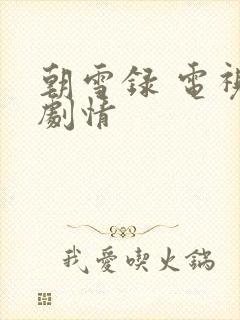 朝雪录 電視
劇情
我愛喫火鍋